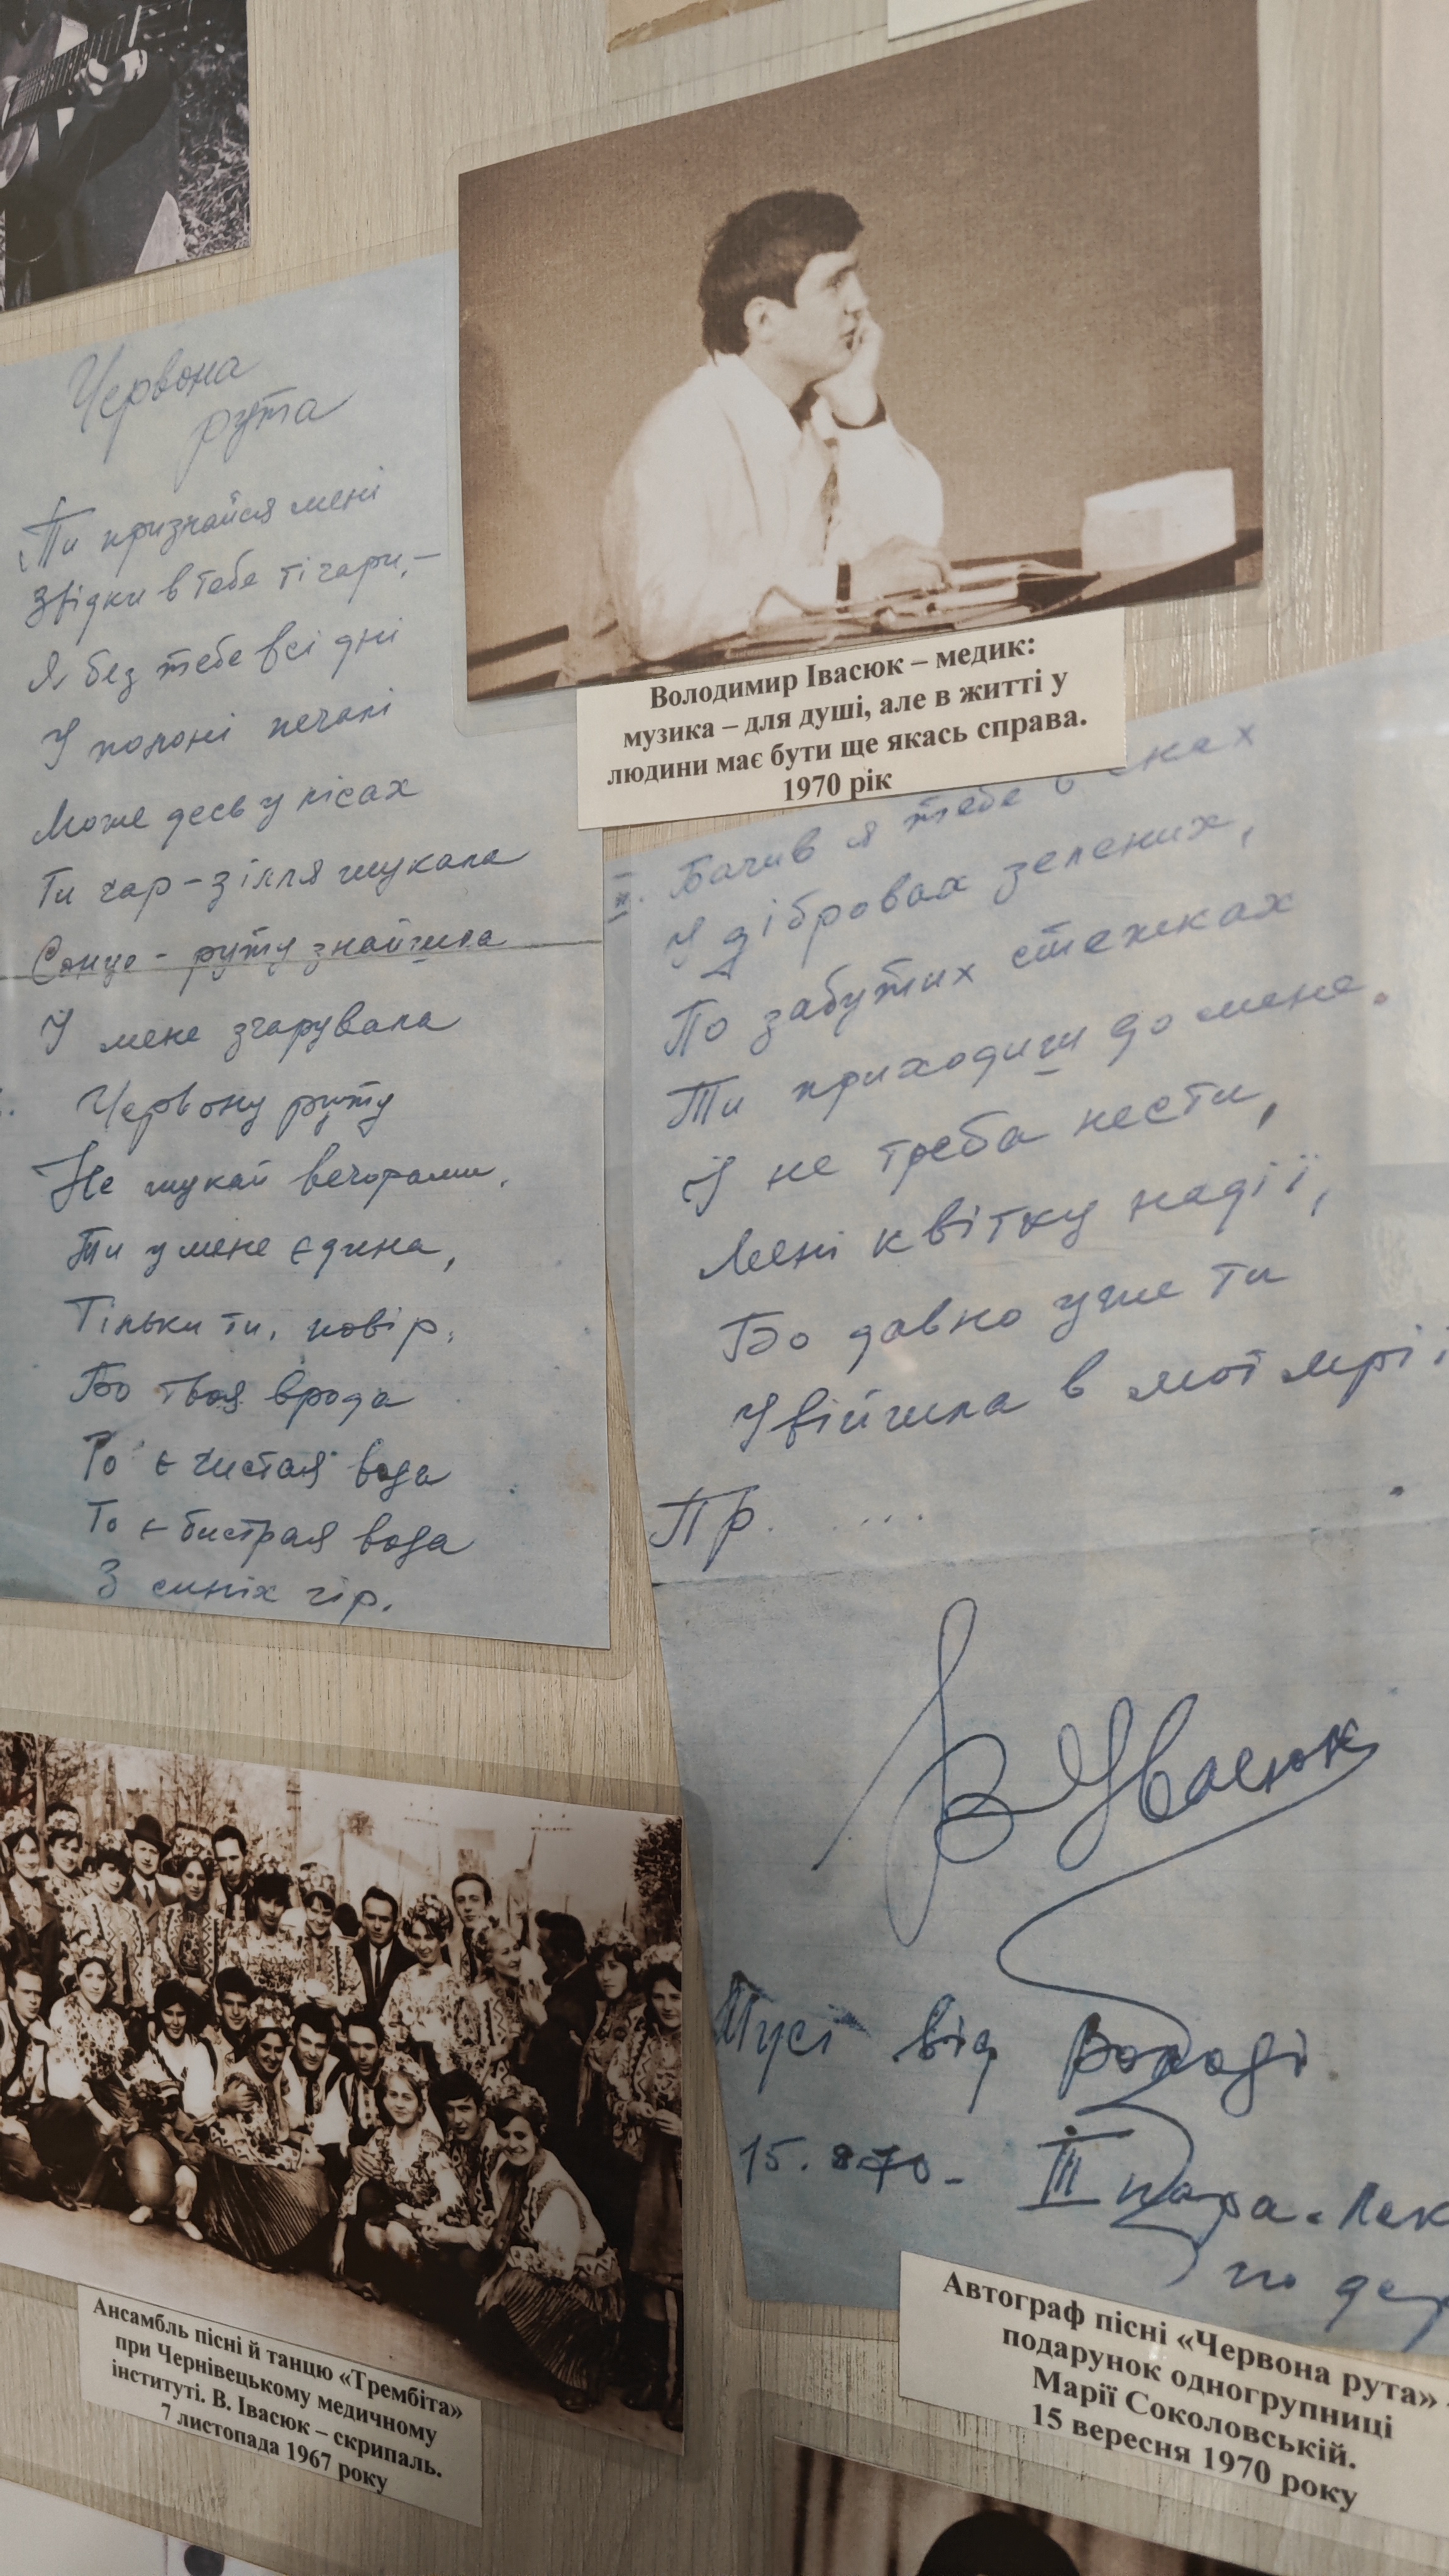 Червона
рута
Ти признайся мені
Звідки в тебе ті чари, –
Я без тебе всі дні
У полоні печалі
Може десь у лісах
Ти чар-зілля шукала
Сонце - руту знайшла
І мене зчарувала
Червону руту
Не шукай вечорами,
Ти у мене єдина,
Тільки ти, повір,
Бо твоя врода
То є чистая вода
То є бистрая вода
З синіх гір.
Володимир Івасюк – медик:
музика – для душі, але в житті у
людини має бути ще якась справа.
1970 рік
II. Бачив я тебе в
У дібровах зелених,
По забутих стежках
Ти приходиш до мене.
І не треба нести,
Мені квітку надії,
Бо давно уже ти
Увійшла в мої мрії
Пр. ....
В Івасюк
Мусі від Володі
15. 70 - III пара. Лек
по
Ансамбль пісні й танцю «Трембіта»
при Чернівецькому медичному
інституті. В. Івасюк – скрипаль.
7 листопада 1967 року
Автограф пісні «Червона рута» -
подарунок одногрупниці
Марії Соколовській.
15 вересня 1970 року